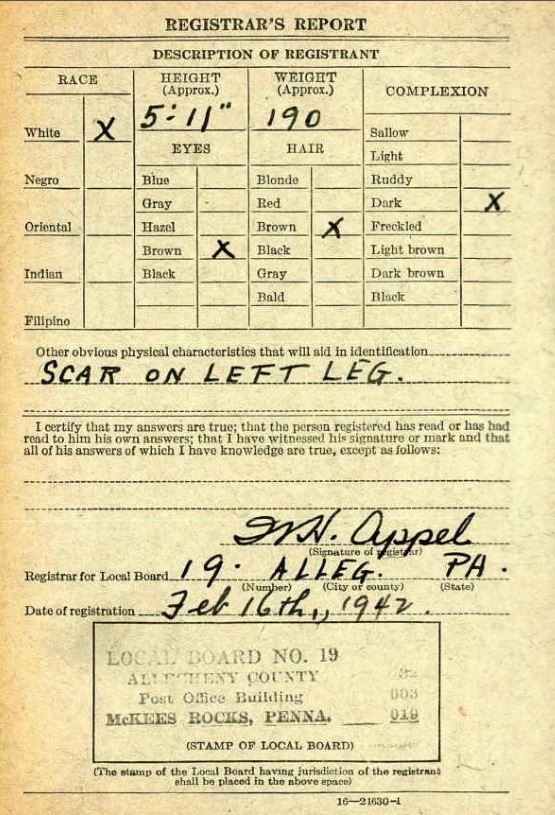 REGISTRAR'S REPORT
DESCRIPTION OF REGISTRANT
RACE
HEIGHT (Approx.)
WEIGHT (Approx.)
COMPLEXION
5-11"
190
White X
Sallow
EYES
HAIR
Light
Negro
Blue
Blonde
Ruddy
Gray
Red
Dark X
Oriental
Hazel
Brown X
Freckled
Brown X
Black
Light brown
Indian
Black
Gray
Dark brown
Bald
Black
Filipino
Other obvious physical characteristics that will aid in identification
SCAR ON LEFT LEG.
I certify that my answers are true; that the person registered has read or has had
read to him his own answers; that I have witnessed his signature or mark and that
all of his answers of which I have knowledge are true, except as follows:
H. Appel
(Signature of registrar)
Registrar for Local Board 19. ALLEG. PA.
(Number) (City or county) (State)
Date of registration Feb 16th, 1942.
LOCAL BOARD NO. 19
ALLEGHENY COUNTY 32
Post Office Building 003
McKEES ROCKS, PENNA. 019
(STAMP OF LOCAL BOARD)
(The stamp of the Local Board having jurisdiction of the registrant
shall be placed in the above space)
16—21630-1